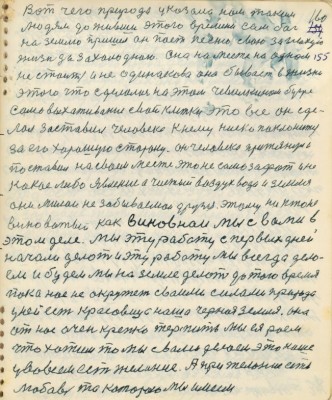 Вот чего природа указала нам таким 160
людям дожившим этого времени сам бог
на землю пришел он поет песню свою за земную
жизнь да за холодного. Она на месте на одном 155
не стоит и не одинакова она бывает в жизни
этого что сделалось на этом
само выхаживание свой это все он сде-
лал заставил человека к нему низко поклонится
за его хорошую сторону. он человека притянул и
поставил на своем месте это не самозахват и не
какое либо явление а чистый воздух вода и земля
они милые не забываемая друзья этому ни кто не
виноватый как виновная мы с вами в
этом деле. мы эту работу с первых дней
начали делать и эту работу мы всегда дела-
ем и будем мы на земле делать до того время
пока нас не окружет своими силами природа
у ней есть красавица наша черная земля. она
от нас очен крепко терпить мы ея роем
что хотим то мы с вами делаем это наше
у всех ест желание. А при желании есть
любов та которую мы имеем